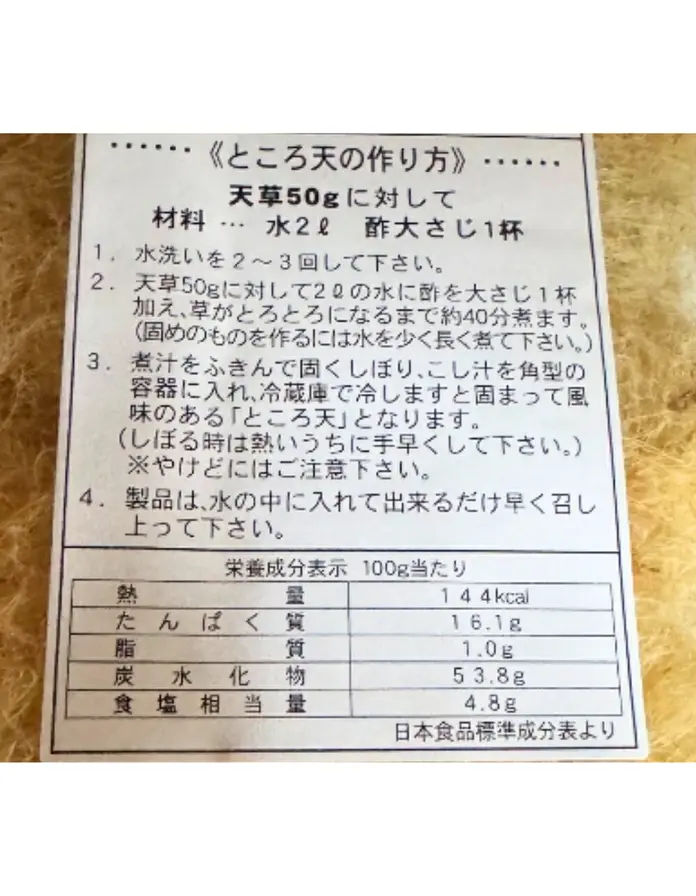 ……《ところ天の作り方》……
天草50gに対して
材料 … 水2ℓ 酢大さじ1杯
1. 水洗いを2～3回して下さい。
2. 天草50gに対して2ℓの水に酢を大さじ1杯
加え、草がとろとろになるまで約40分煮ます。
(固めのものを作るには水を少く長く煮て下さい。)
3. 煮汁をふきんで固くしぼり、こし汁を角型の
容器に入れ、冷蔵庫で冷しますと固まって風
味のある「ところ天」となります。
(しぼる時は熱いうちに手早くして下さい。)
※やけどにはご注意下さい。
4. 製品は、水の中に入れて出来るだけ早く召し
上って下さい。
栄養成分表示 100g当たり
熱量 144kcal
たんぱく質 16.1g
脂質 1.0g
炭水化物 53.8g
食塩相当量 4.8g
日本食品標準成分表より